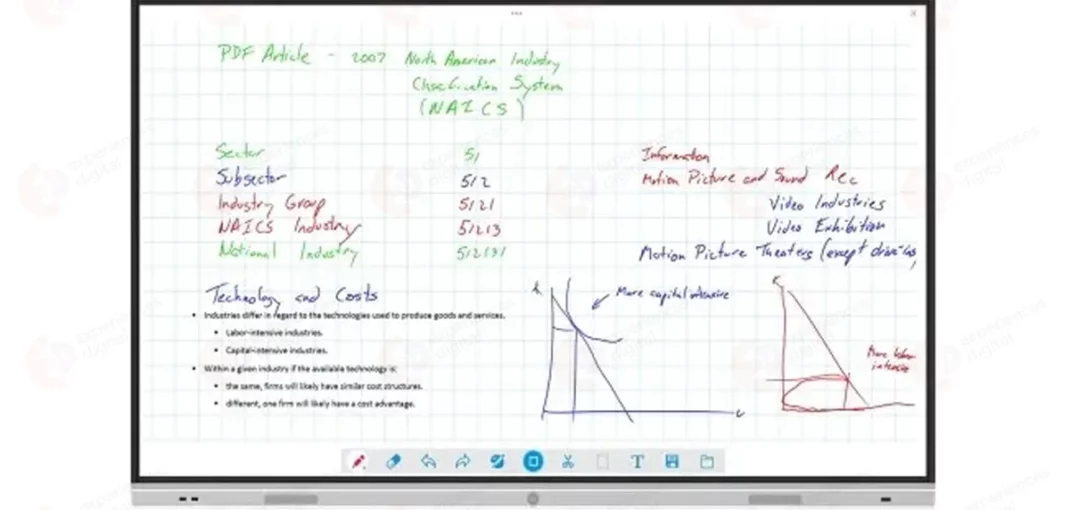 PDF Article - 2007 North American Industry
Classification System
(NAICS)
Sector 51 Information
Subsector 512 Motion Picture and Sound Rec
Industry Group 5121 Video Industries
NAICS Industry 51213 Video Exhibition
National Industry 512131 Motion Picture Theaters (except drive-ins)
Technology and Costs
• Industries differ in regard to the technologies used to produce goods and services.
• Labor-intensive industries.
• Capital-intensive industries.
• Within a given industry if the available technology is:
• the same, firms will likely have similar cost structures.
• different, one firm will likely have a cost advantage.
K
More capital intensive
L
K
More labor
intensive
T
experiences
digital